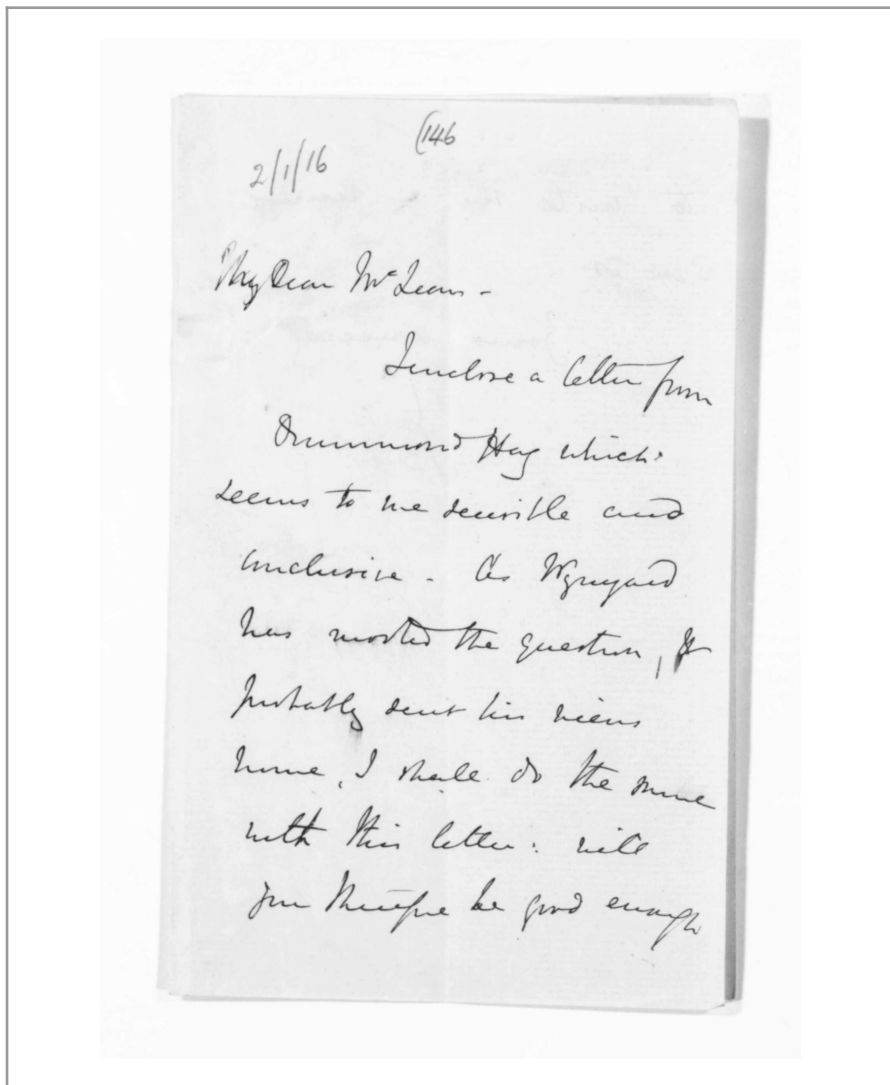 (146
2/1/16
My Dear McLean -
I enclose a letter from
Drummond Hay which
seems to me sensible and
conclusive. As Wynyard
has mooted the question, &
probably sent his views
home, I shall do the same
with this letter: will
you therefore be good enough